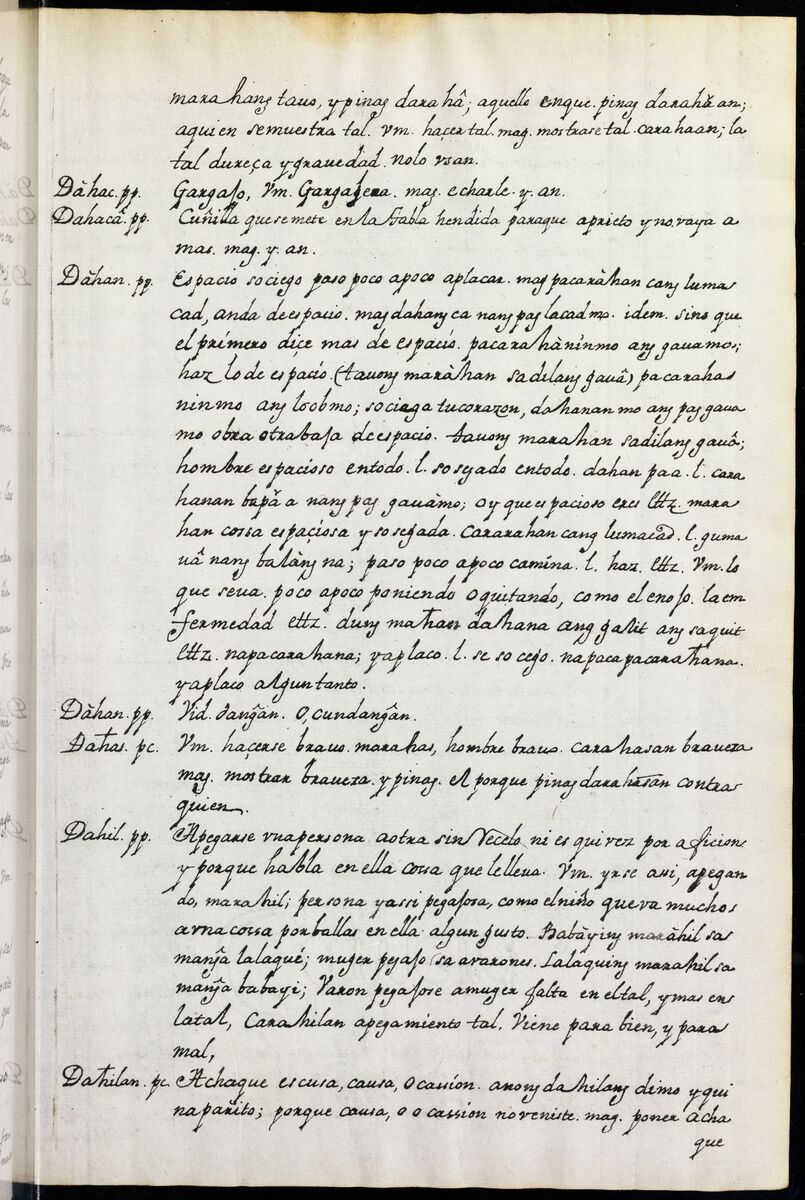 marahang tauo, y pinag darahâ; aquello enque. pinag darahăan;
aquien semuestra tal. vm. haçer tal. mag. mostrarse tal. carahaan; la
tal dureça y gravedad. nolo vsan.
Dàhac. pp. Gargajo, Vm. Gargagera. mag. echarle. y. an.
Dahacâ. pp. Cuñilla quesemete en la tabla hendida paraque aprieto y no vaya a
mas. mag. y. an.
Dàhan. pp. Espacio sociego paso poco apoco aplacar. mag pacaràhan cang luma
cad, anda de espacio. mag dahang ca nang pag lacad mo. idem. sino que
el primero diçe mas de espacio. pacarahàninmo ang gauamo;
haz lo de espacio. (tauong maràhan sadilang gauâ) pacaraha
ninmo ang loobmo; sociega tucorazon, dahanan mo ang pag gaua
mo obra otrabaja deespacio. tauong marahan sadilang gauâ;
hombre espacioso entodo. l. sosegado entodo. dahan paa. l. cara
hanan bapă a nang pag gauàmo; o y que espacioso eres ettz. mara
han cossa espaçiosa y sosegada. Cararahan cang lumacad. l. guma
uâ nang balàng na; paso poco apoco camina. l. haz. ettz. Vm. lo
que seva. poco apoco poniendo o quitando, como el enojo. la em
fermedad ettz. dung mahan dahana ang galit ang saquit
ettz. napacarahana; yaplaco. l. se socego. napacapacarahana.
yaplaco algun tanto.
Dàhan. pp. Vid. dangan. O, cundangan.
Dahas. pc. Vm. haçerse brauo. marahas, hombre brauo. carahasan braueza
mag. mostrar braueza. y pinag. el porque pinagdarahasan contra
quien.
Dahil. pp. Apegarse vna persona aotra sin Recelo ni esquivez por aficion
y porque habla en ella cossa que le lleua. Vm. yrse assi, apegan
do, marahil; persona yassi pegajosa, como el niño queva muchos
avna cossa porhallas en ella algun gusto. Babàying maràhil sa
manga lalaqué; muger pegajosa avarones. Lalaquing marahil sa
manga babayi; Varon pegajose amuger falta en el tal, y mas en
latal, Carahilan apegamiento tal. Viene para bien, y para
mal,
Dahilan. pc. Achaque escusa, causa, Ocassion. anong dahilang dimo yqui
naparito; porque causa, o ocassion noveniste. mag. poner acha
que